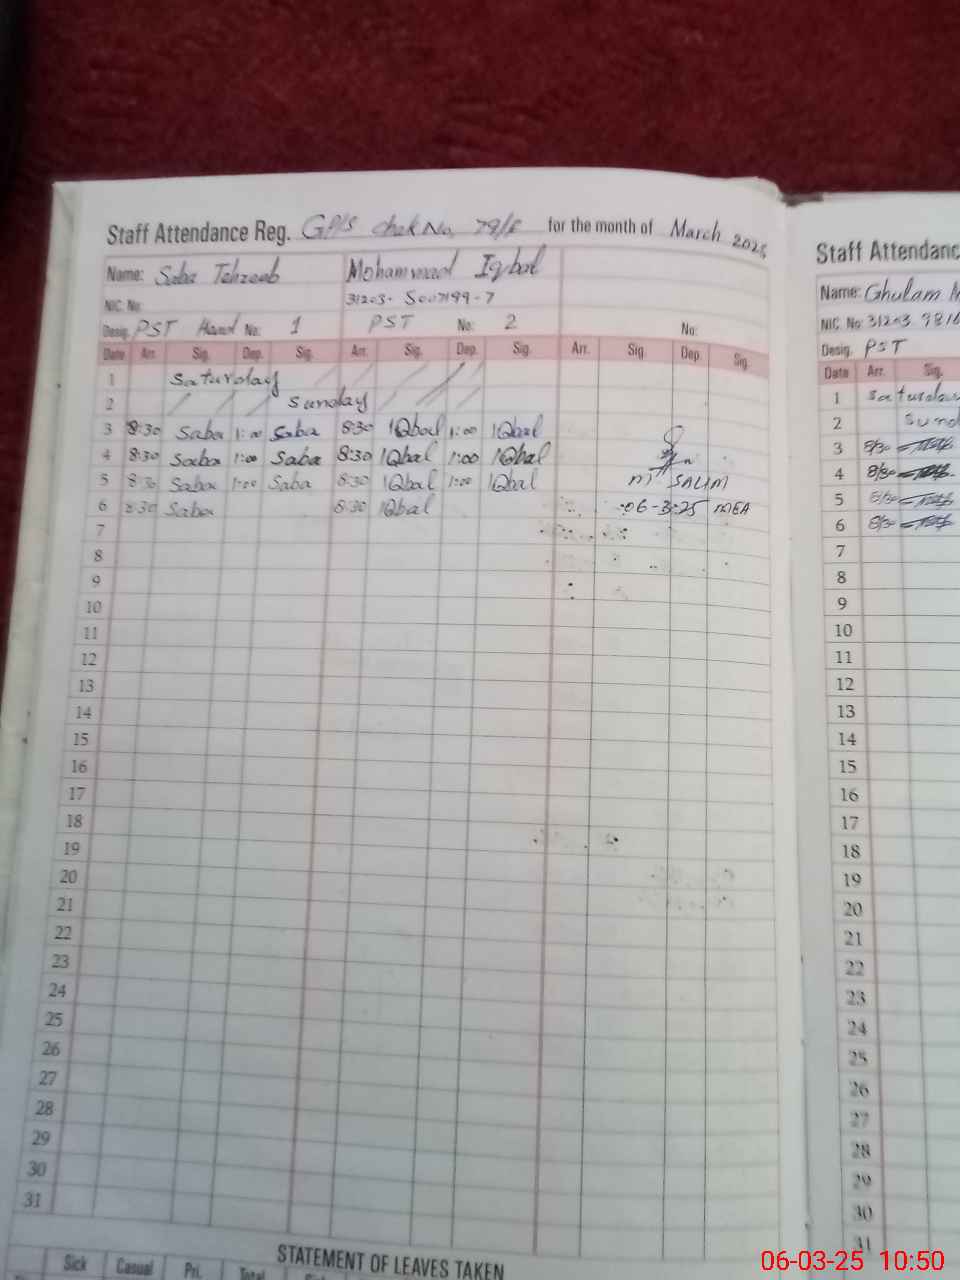 Staff Attendance Reg. GP/S chak No, 79/F for the month of March 2025
Name: Saba Tehzeeb Mohammad Iqbal
NIC. No: 31203-5007199-7
Desig. PST Head No: 1 PST No: 2 No:
Date Arr. Sig. Dep. Sig. Arr. Sig. Dep. Sig. Arr. Sig. Dep. Sig.
1 Saturday
2 Sunday
3 8:30 Saba 1:00 Saba 8:30 IQbal 1:00 IQbal
4 8:30 Saba 1:00 Saba 8:30 IQbal 1:00 IQbal
5 8:30 Saba 1:00 Saba 8:30 IQbal 1:00 IQbal M SALIM
6 8:30 Saba 8:30 IQbal 06-3-25 MEA
7
8
9
10
11
12
13
14
15
16
17
18
19
20
21
22
23
24
25
26
27
28
29
30
31
STATEMENT OF LEAVES TAKEN
Sick Casual Pri. Total
Staff Attendance
Name: Ghulam
NIC. No: 31203 9816
Desig. PST
Date Arr. Sig.
1 Saturday
2 Sund
3 8/30
4 8/30
5 8/30
6 8/30
7
8
9
10
11
12
13
14
15
16
17
18
19
20
21
22
23
24
25
26
27
28
29
30
31
06-03-25 10:50